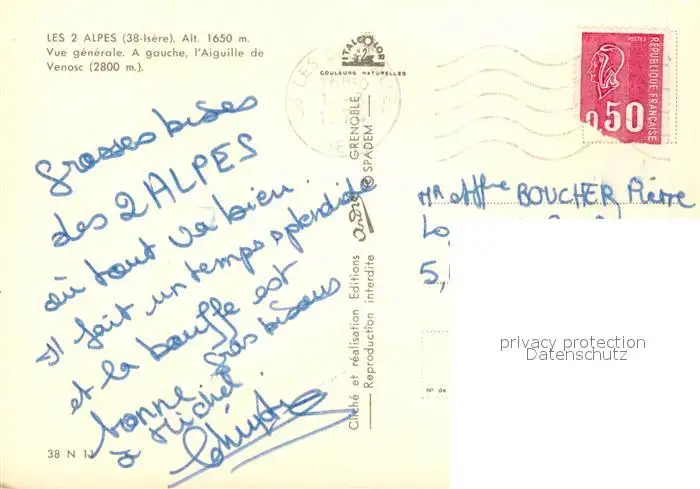 LES 2 ALPES (38-Isère). Alt. 1650 m.
Vue générale. A gauche, l'Aiguille de
Venosc (2800 m.).
ITALCOLOR
COULEURS NATURELLES
RÉPUBLIQUE FRANÇAISE
POSTES
0,50
Grosses bises
des 2 ALPES
où tout va bien.
Il fait un temps splendide
et la bouffe est
bonne. gros bisous
à Michel.
Mr et Mme BOUCHER Pierre
5,
Cliché et réalisation Editions André GRENOBLE
Reproduction interdite © SPADEM
privacy protection
Datenschutz
N° de
38 N 11